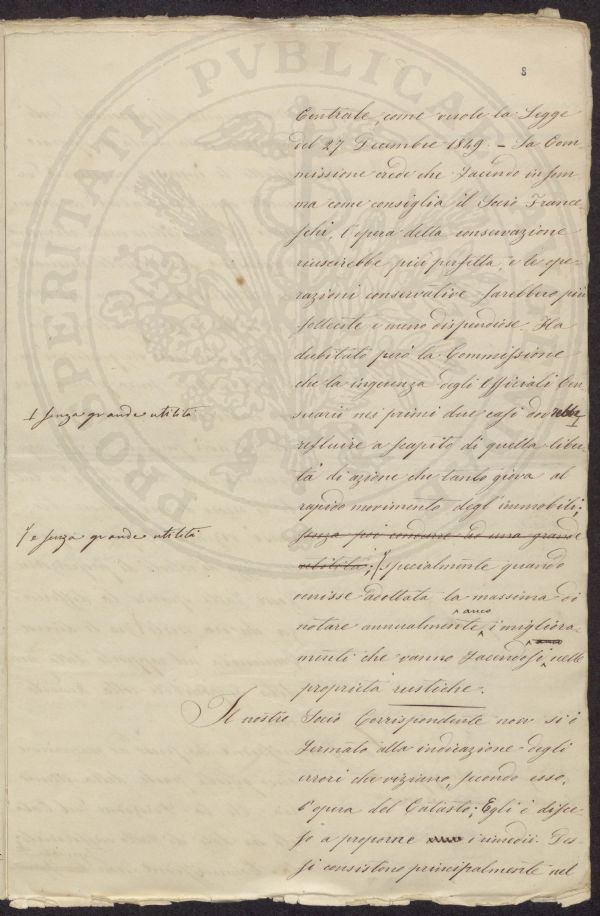 8
Centrale, come vuole la Legge
del 27 Dicembre 1849. – La Com-
missione crede che facendo in som-
ma come consiglia il Socio France-
schi, l'opera della conservazione
riuscirebbe più perfetta, e le ope-
razioni conservative sarebbero più
sollecite e meno dispendiose. Ha
dubitato però la Commissione
che la ingerenza degli Officiali Cen-
suarii nei primi due casi dovrebbe
1 senza grande utilità
refluire a scapito di quella liber-
tà di azione che tanto giova al
rapido movimento degl'immobili;
senza poi condurre ad una grande
utilità; specialmente quando
e senza grande utilità
venisse adottata la massima di
notare annualmente anco i migliora-
menti che vanno facendosi anco nelle
proprietà rustiche.
Il nostro Socio Corrispondente non si è
fermato alla indicazione degli
errori che viziano, secondo esso,
l'opera del Catasto; Egli è disce-
so a proporne i rimedii. Es-
si consistono principalmente nel
PROSPERITATI PVBLICAE